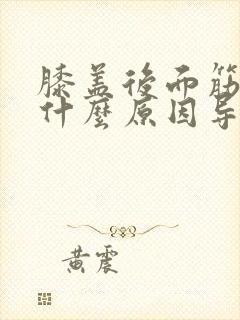 膝盖後而筋
什麼原因导
黄震